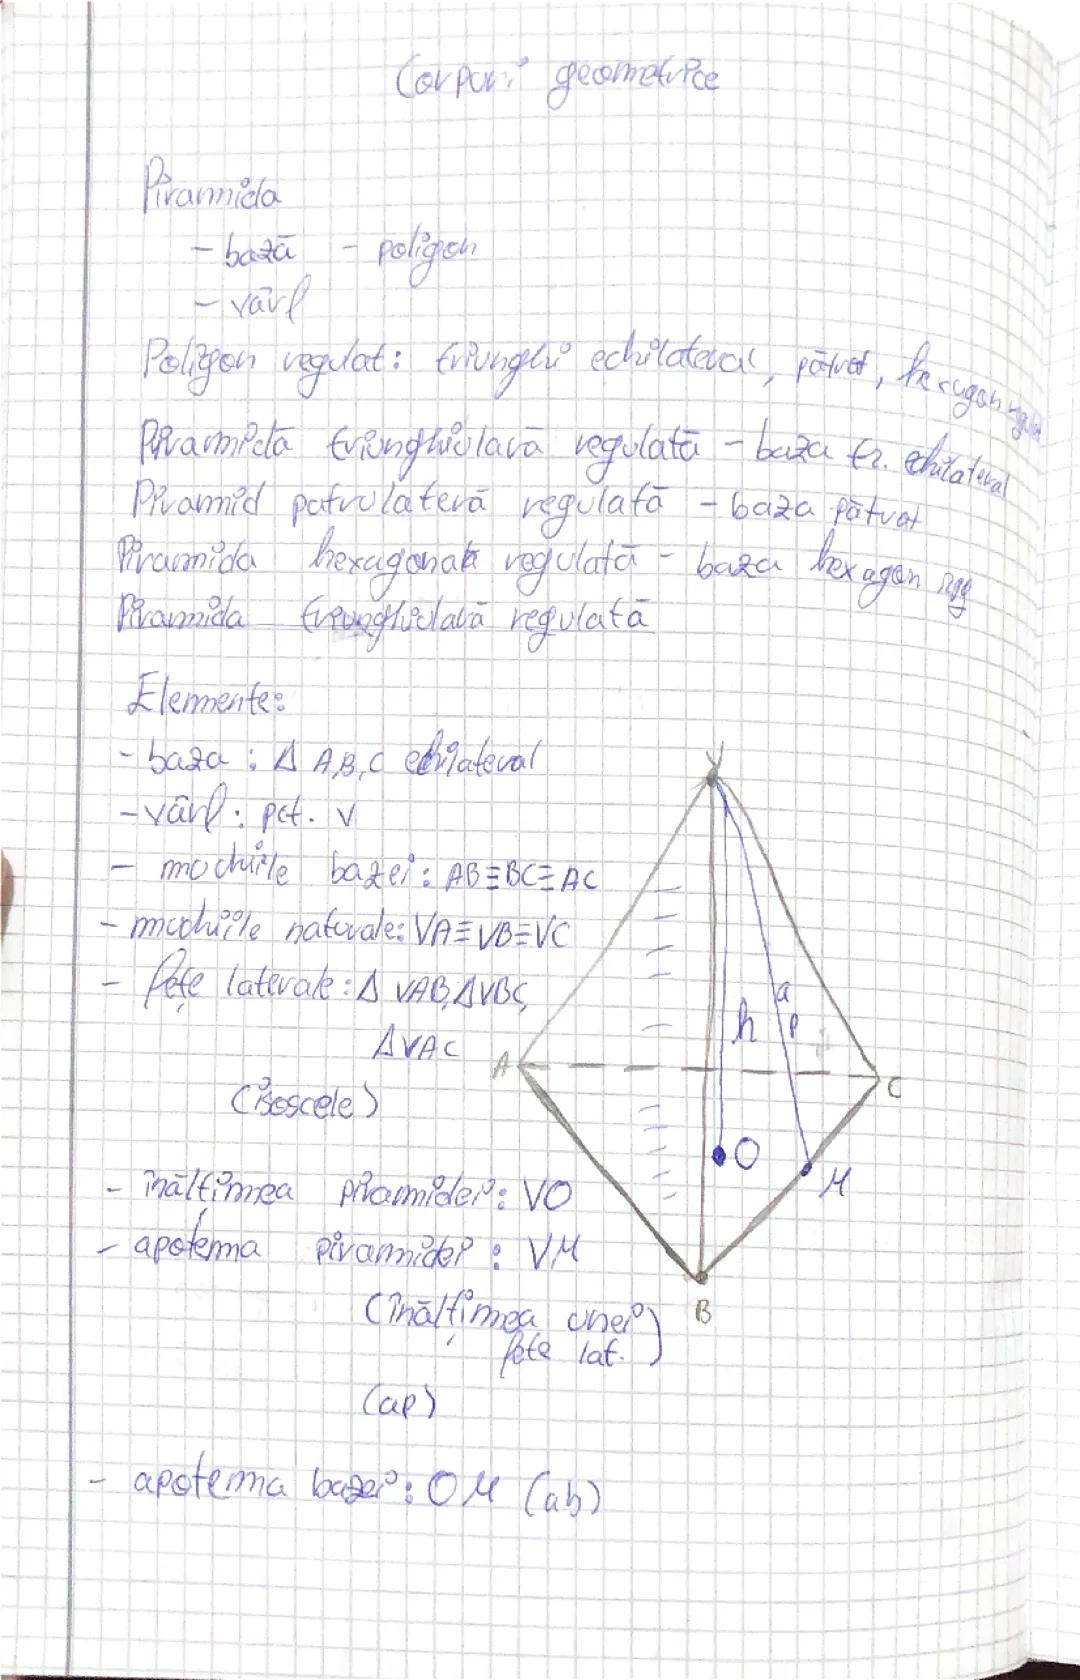 Corpuri geometrice
Piramida
- bază - poligon
- vârf
Poligon regulat: triunghi echilateral, pătrat, hexagon regulat
Piramidă triunghiulară regulată - baza tr. echilateral
Piramid patrulateră regulată - baza pătrat
Piramida hexagonală regulată - baza hexagon reg
Piramida triunghiulară regulată
Elemente:
- baza : Δ A,B,C echilateral
- vârf : pct. V
- muchiile bazei : AB≡BC≡AC
- muchiile naturale: VA≡VB≡VC
- fețe laterale : Δ VAB, ΔVBC,
ΔVAC
(isoscele)
- înălțimea piramidei : VO
- apotema piramidei : VM
(înălțimea unei
fețe lat.)
(ap)
- apotema bazei : OM (ab)
V
a
p
h
A
C
O
M
B